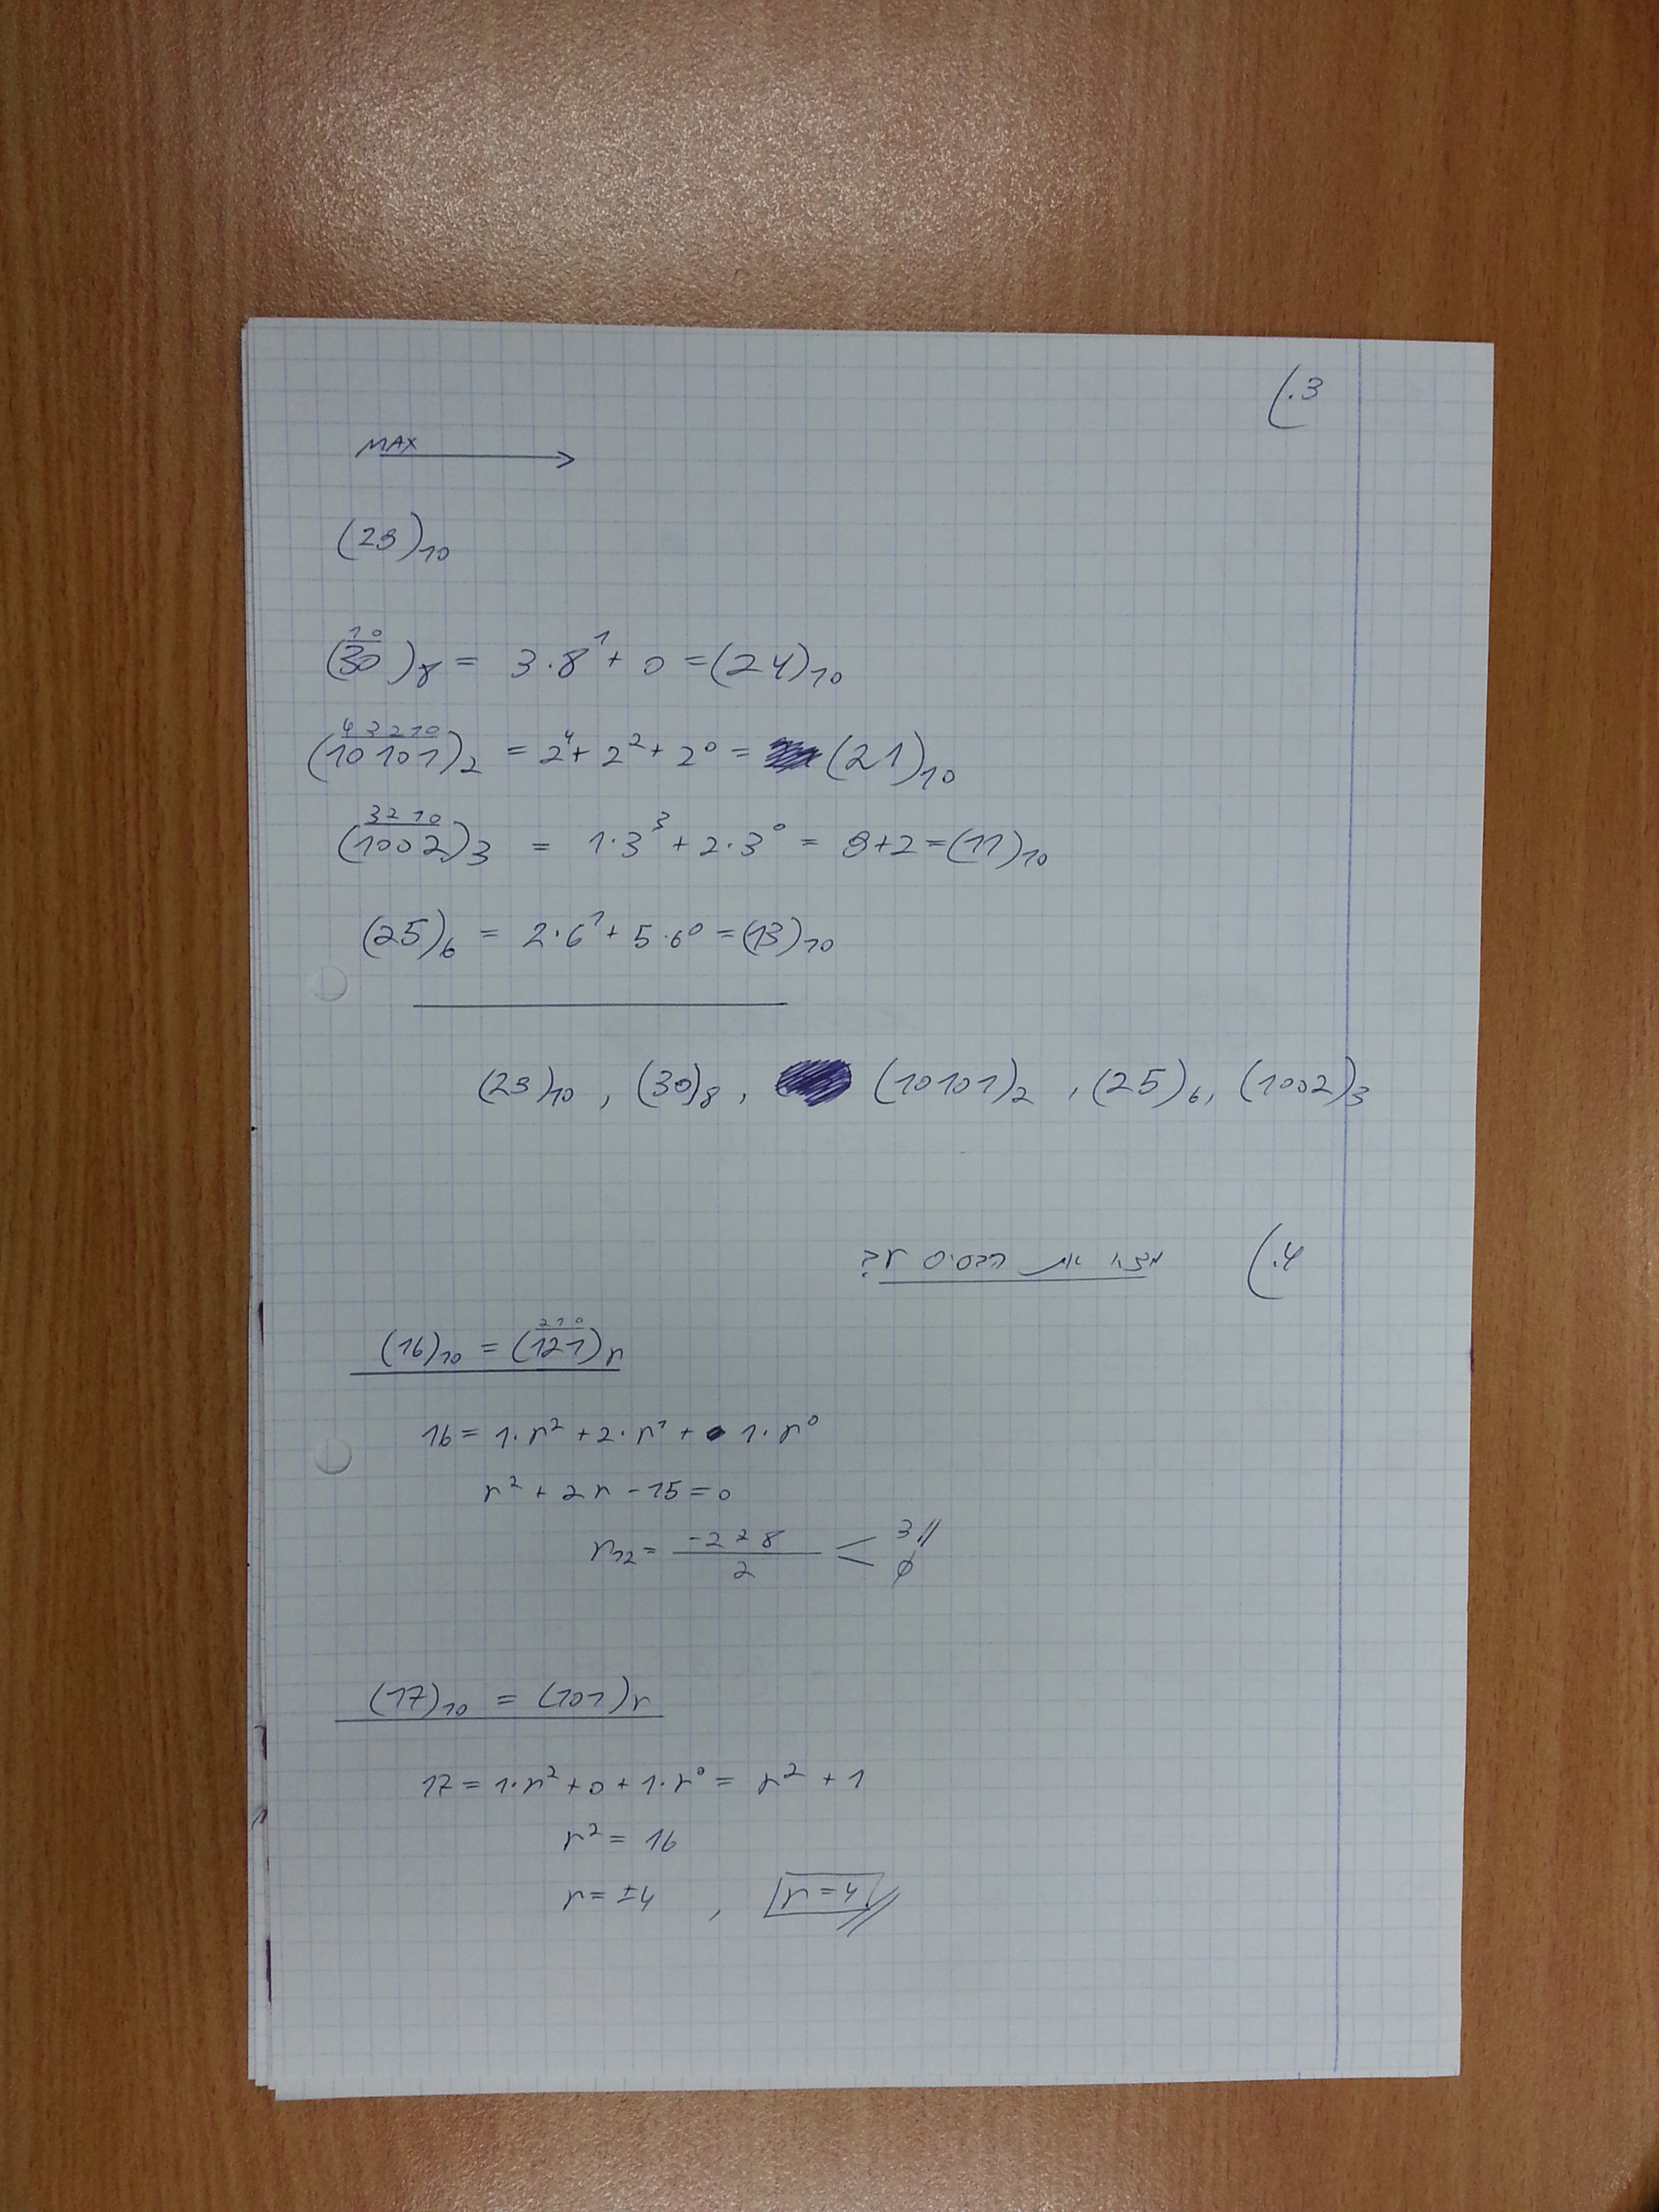 3.)
MAX
(29)10
10
(30)8 = 3·8¹ + 0 = (24)10
43210
(10101)2 = 2⁴ + 2² + 2⁰ = (21)10
3210
(1002)3 = 1·3³ + 2·3⁰ = 9+2 = (11)10
(25)6 = 2·6¹ + 5·6⁰ = (13)10
(29)10 , (30)8 , (10101)2 , (25)6 , (1002)3
4.) מצאו את הבסיס r?
210
(16)10 = (121)r
16 = 1·r² + 2·r¹ + 1·r⁰
r² + 2r - 15 = 0
r12 = (-2 ± 8)/2 < 3 // φ
(17)10 = (101)r
17 = 1·r² + 0 + 1·r⁰ = r² + 1
r² = 16
r = ±4 , r = 4 //